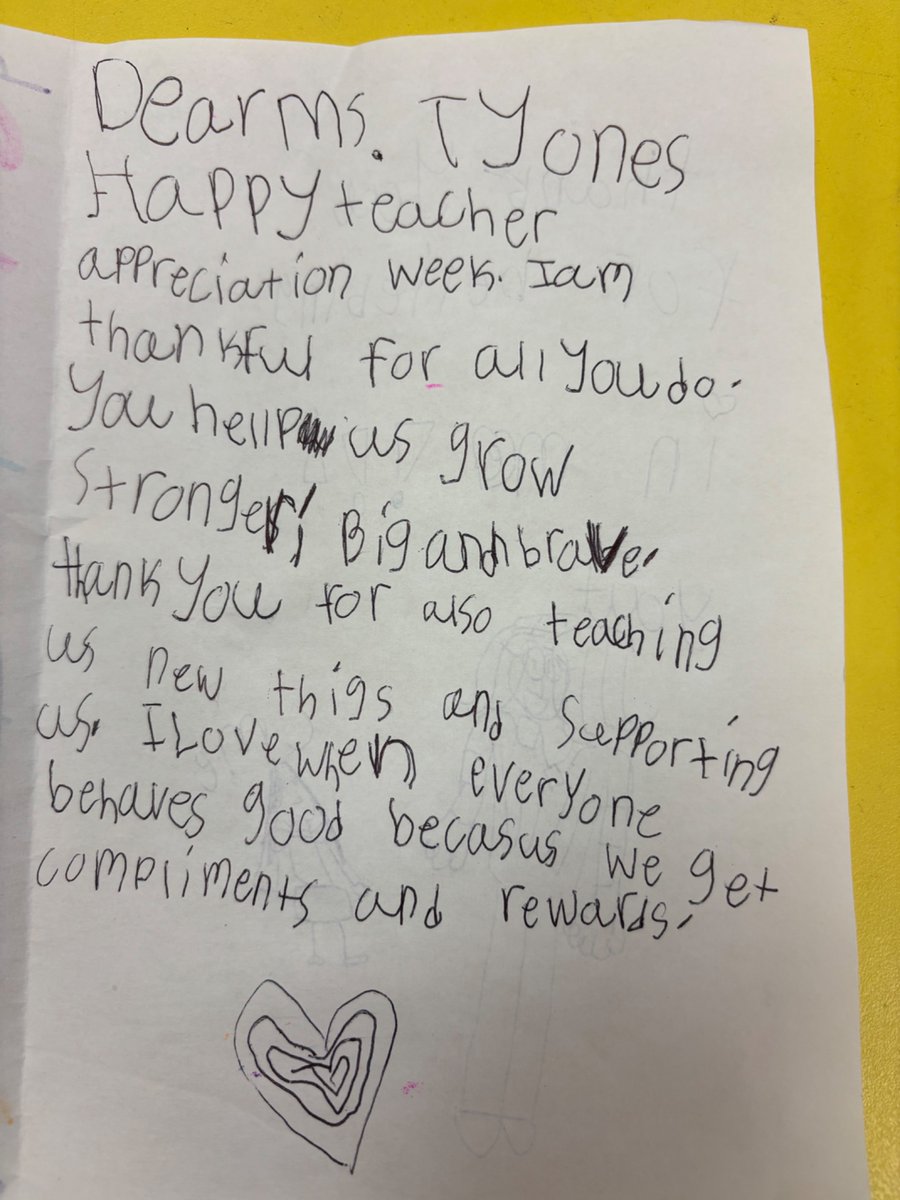 Dear ms. TYones
Happy teacher
appreciation week. I am
thankful for all you do.
You hellp us grow
stronger, Big and brave.
thank you for also teaching
us new thigs and supporting
us. I Love when everyone
behaves good becasus we get
compliments and rewards.